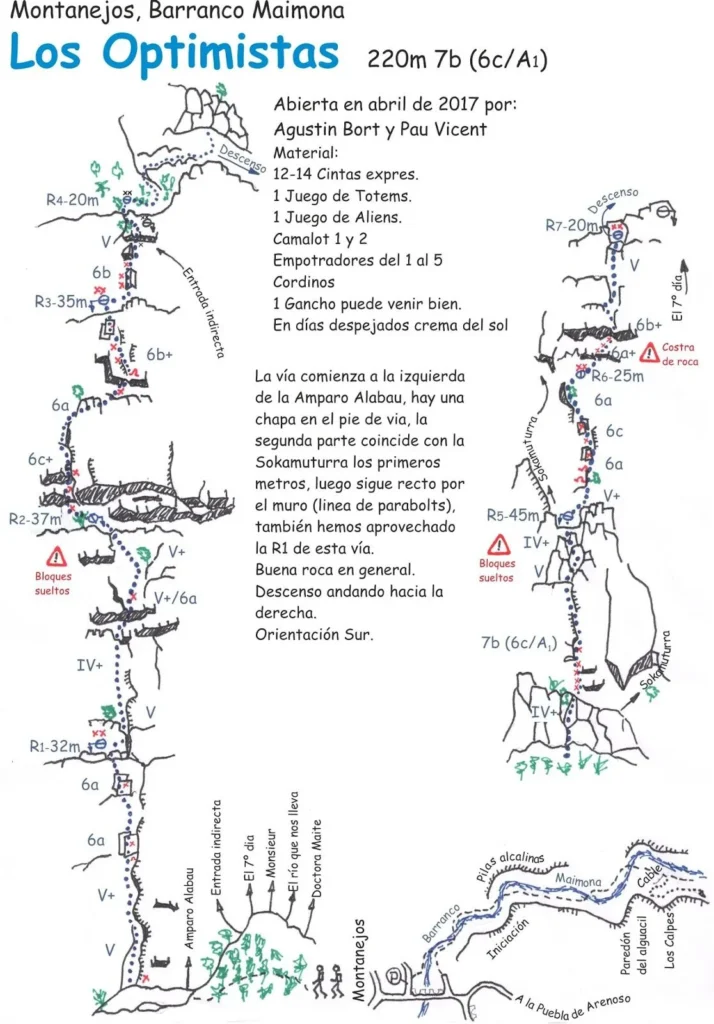 Montanejos, Barranco Maimona
Los Optimistas 220m 7b (6c/A1)
Abierta en abril de 2017 por:
Agustin Bort y Pau Vicent
Material:
12-14 Cintas expres.
1 Juego de Totems.
1 Juego de Aliens.
Camalot 1 y 2
Empotradores del 1 al 5
Cordinos
1 Gancho puede venir bien.
En días despejados crema del sol
La vía comienza a la izquierda
de la Amparo Alabau, hay una
chapa en el pie de via, la
segunda parte coincide con la
Sokamuturra los primeros
metros, luego sigue recto por
el muro (linea de parabolts),
también hemos aprovechado
la R1 de esta vía.
Buena roca en general.
Descenso andando hacia la
derecha.
Orientación Sur.
Descenso
R4-20m
V
6b
R3-35m
Entrada indirecta
6b+
6a
6c+
R2-37m
Bloques
sueltos
V+
V+/6a
IV+
V
R1-32m
6a
6a
V+
V
Amparo Alabau
Entrada indirecta
El 7º dia
Monsieur
El río que nos lleva
Doctora Maite
Descenso
R7-20m
V
El 7º día
6b+
6a+
Costra
de roca
R6-25m
6a
6c
6a
Sokamuturra
V+
R5-45m
IV+
Bloques
sueltos
V
7b (6c/A1)
Sokamuturra
IV+
Pilas alcalinas
Maimona
Cable
Barranco
Iniciación
Paredón
del alguacil
Los Calpes
Montanejos
P
A la Puebla de Arenoso